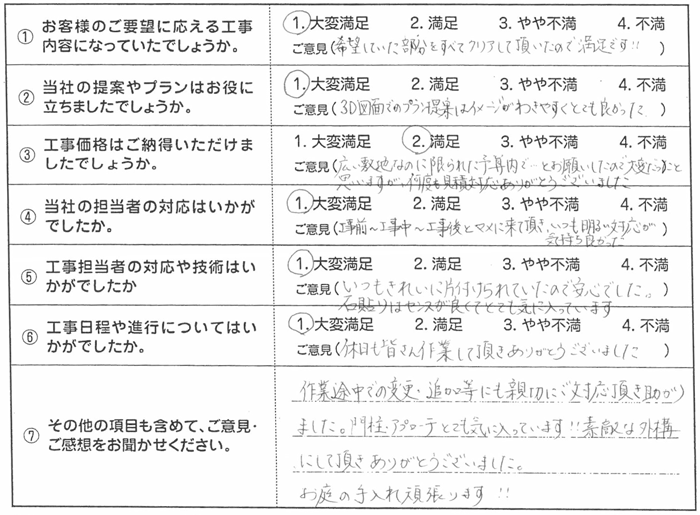 ① お客様のご要望に応える工事内容になっていたでしょうか。
1. 大変満足 2. 満足 3. やや不満 4. 不満
ご意見(希望していた部分をすべてクリアして頂いたので満足です!!)
② 当社の提案やプランはお役に立ちましたでしょうか。
1. 大変満足 2. 満足 3. やや不満 4. 不満
ご意見(3D図面でのプラン提案はイメージがわきやすくとても良かった)
③ 工事価格はご納得いただけましたでしょうか。
1. 大変満足 2. 満足 3. やや不満 4. 不満
ご意見(広い敷地なのに限られた予算内で…とお願いしたので大変だったこと
思いますが、何度も見積対応ありがとうございました)
④ 当社の担当者の対応はいかがでしたか。
1. 大変満足 2. 満足 3. やや不満 4. 不満
ご意見(工事前～工事中～工事後とマメに来て頂き、いつも明るい対応が
気持ち良かった)
⑤ 工事担当者の対応や技術はいかがでしたか
1. 大変満足 2. 満足 3. やや不満 4. 不満
ご意見(いつもきれいに片付けられていたので安心でした。
石貼りはセンスが良くてとても気に入っています)
⑥ 工事日程や進行についてはいかがでしたか。
1. 大変満足 2. 満足 3. やや不満 4. 不満
ご意見(休日も皆さん作業して頂きありがとうございました)
⑦ その他の項目も含めて、ご意見・ご感想をお聞かせください。
作業途中での変更・追加等にも親切にご対応頂き助かり
ました。門柱・アプローチとても気に入っています!!素敵な外構
にして頂きありがとうございました。
お庭の手入れ頑張ります!!